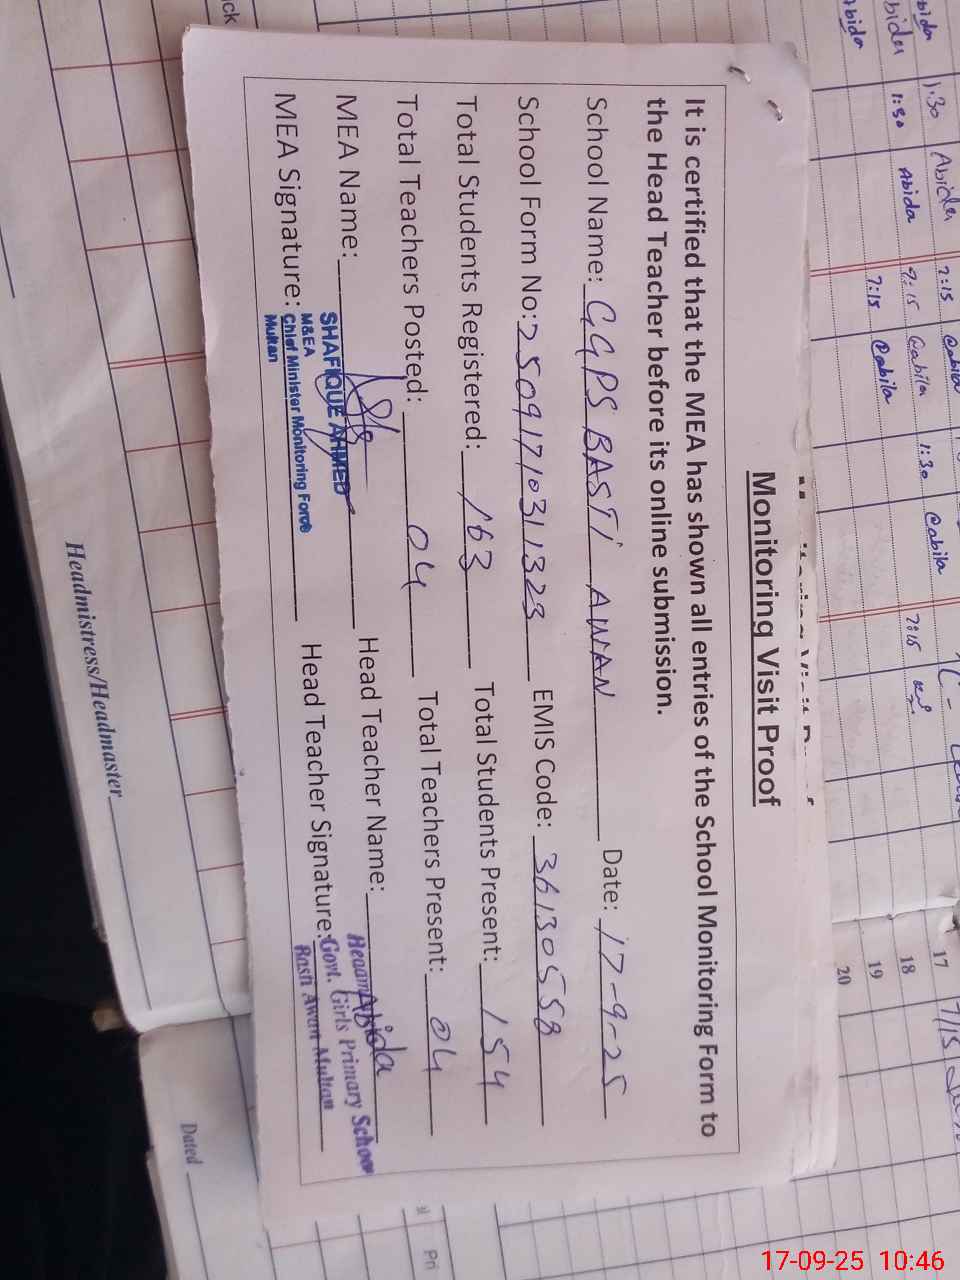 Monitoring Visit Proof
It is certified that the MEA has shown all entries of the School Monitoring Form to
the Head Teacher before its online submission.
School Name: GGPS BASTI AWAN Date: 17-9-25
School Form No: 2509171031323 EMIS Code: 36130558
Total Students Registered: 163 Total Students Present: 154
Total Teachers Posted: 04 Total Teachers Present: 04
MEA Name: Head Teacher Name: Abida
SHAFIQUE AHMED
M&EA
MEA Signature: Chief Minister Monitoring Force Head Teacher Signature:
Multan
Govt. Girls Primary School
Basti Awan Multan
Headmistress/Headmaster
Dated
Abida 1:30 Abida 7:15 @abila
Abida 1:30 Abida 7:15 @abila 1:30 @abila
Abida 7:15 @abila 7:15
17
18
19
20
7/15
Pri
17-09-25 10:46